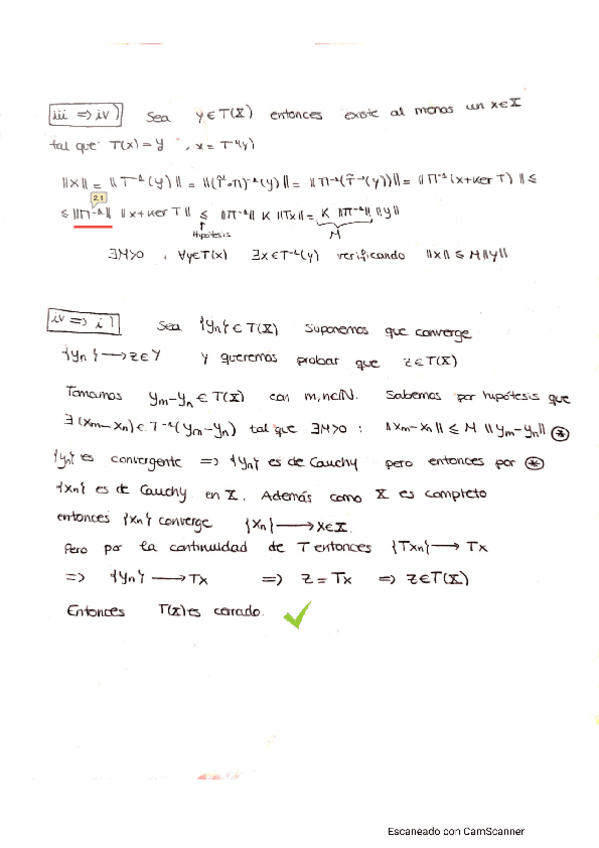 iii ⇒ iv) Sea y∈T(X) entonces existe al menos un x∈X
tal que T(x) = y , x = T⁻¹(y)
‖x‖ = ‖T⁻¹(y)‖ = ‖(T̂∘Π)⁻¹(y)‖ = ‖Π⁻¹(T̂⁻¹(y))‖ = ‖Π⁻¹(x+Ker T)‖ ≤
2.1
≤ ‖Π⁻¹‖ ‖x+Ker T‖ ≤ ‖Π⁻¹‖ K ‖Tx‖ = K ‖Π⁻¹‖ ‖y‖
Hipótesis M
∃M>0 , ∀y∈T(x) ∃x∈T⁻¹(y) verificando ‖x‖ ≤ M‖y‖
iv ⇒ i) Sea {yn} ∈ T(X) suponemos que converge
{yn} → z∈Y y queremos probar que z∈T(X)
Tomamos ym-yn ∈ T(X) con m,n∈ℕ. Sabemos por hipótesis que
∃ (xm-xn) ∈ T⁻¹(ym-yn) tal que ∃M>0 : ‖xm-xn‖ ≤ M ‖ym-yn‖ ⊛
{yn} es convergente ⇒ {yn} es de Cauchy pero entonces por ⊛
{xn} es de Cauchy en X. Además como X es completo
entonces {xn} converge {xn} → x∈X.
Pero por la continuidad de T entonces {Txn} → Tx
⇒ {yn} → Tx ⇒ z = Tx ⇒ z∈T(X)
Entonces T(X) es cerrado. ✓
Escaneado con CamScanner